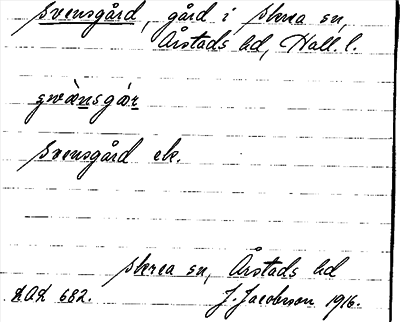 Svensgård, gård i Skrea sn,
Årstads hd, Hall. l.
svènsgár
Svensgård ek.
Skrea sn, Årstads hd
DAL 682. J. Jacobsson 1916.